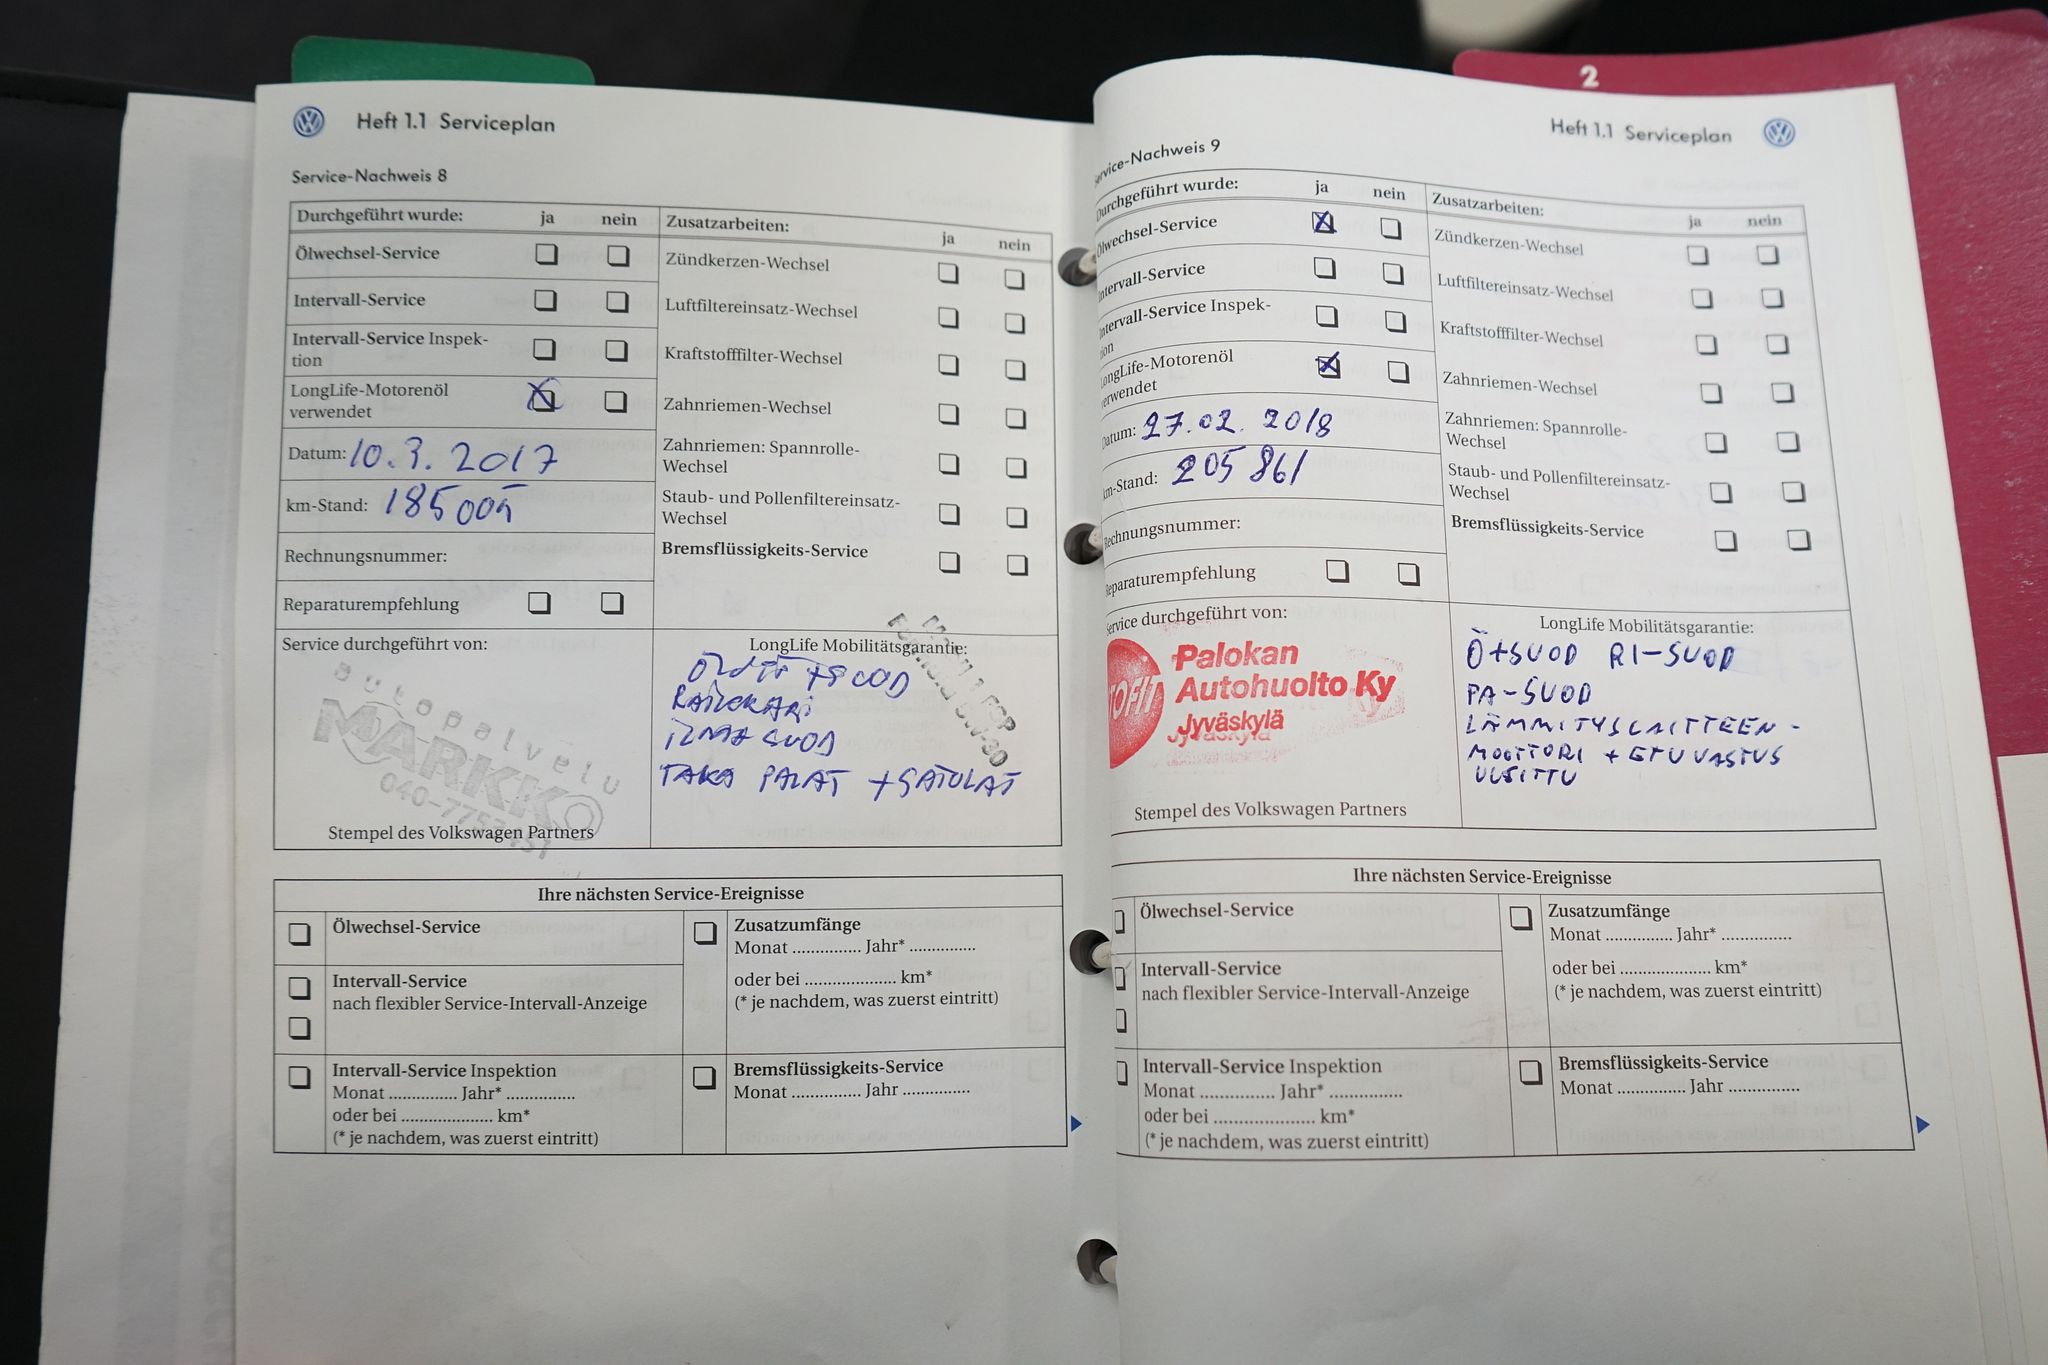 Heft 1.1 Serviceplan
Service-Nachweis 8
Durchgeführt wurde: ja nein
Ölwechsel-Service
Intervall-Service
Intervall-Service Inspek-
tion
LongLife-Motorenöl
verwendet
Datum: 10.3.2017
km-Stand: 185005
Rechnungsnummer:
Reparaturempfehlung
Zusatzarbeiten: ja nein
Zündkerzen-Wechsel
Luftfiltereinsatz-Wechsel
Kraftstofffilter-Wechsel
Zahnriemen-Wechsel
Zahnriemen: Spannrolle-
Wechsel
Staub- und Pollenfiltereinsatz-
Wechsel
Bremsflüssigkeits-Service
Service durchgeführt von:
autopalvelu
MARKKO
Stempel des Volkswagen Partners
LongLife Mobilitätsgarantie:
+SUOD
ILMA SUOD
TAKA PALAT + SATULAT
Ihre nächsten Service-Ereignisse
Ölwechsel-Service
Intervall-Service
nach flexibler Service-Intervall-Anzeige
Intervall-Service Inspektion
Monat ............... Jahr* ...............
oder bei .................... km*
(* je nachdem, was zuerst eintritt)
Zusatzumfänge
Monat ............... Jahr* ...............
oder bei .................... km*
(* je nachdem, was zuerst eintritt)
Bremsflüssigkeits-Service
Monat ............... Jahr ...............
2
Heft 1.1 Serviceplan
ervice-Nachweis 9
Durchgeführt wurde: ja nein
Ölwechsel-Service
Intervall-Service
Intervall-Service Inspek-
ion
LongLife-Motorenöl
verwendet
Datum: 27.02.2018
km-Stand: 205 861
Rechnungsnummer:
Reparaturempfehlung
Zusatzarbeiten: ja nein
Zündkerzen-Wechsel
Luftfiltereinsatz-Wechsel
Kraftstofffilter-Wechsel
Zahnriemen-Wechsel
Zahnriemen: Spannrolle-
Wechsel
Staub- und Pollenfiltereinsatz-
Wechsel
Bremsflüssigkeits-Service
Service durchgeführt von:
TOFIT
Palokan
Autohuolto Ky
Jyväskylä
Stempel des Volkswagen Partners
LongLife Mobilitätsgarantie:
Ö+SUOD RI-SUOD
PA-SUOD
LÄMMITYSLAITTEEN-
MOOTTORI + ETUVASTUS
UUSITTU
Ihre nächsten Service-Ereignisse
Ölwechsel-Service
Intervall-Service
nach flexibler Service-Intervall-Anzeige
Intervall-Service Inspektion
Monat ............... Jahr* ...............
oder bei .................... km*
(* je nachdem, was zuerst eintritt)
Zusatzumfänge
Monat ............... Jahr* ...............
oder bei .................... km*
(* je nachdem, was zuerst eintritt)
Bremsflüssigkeits-Service
Monat ............... Jahr ...............